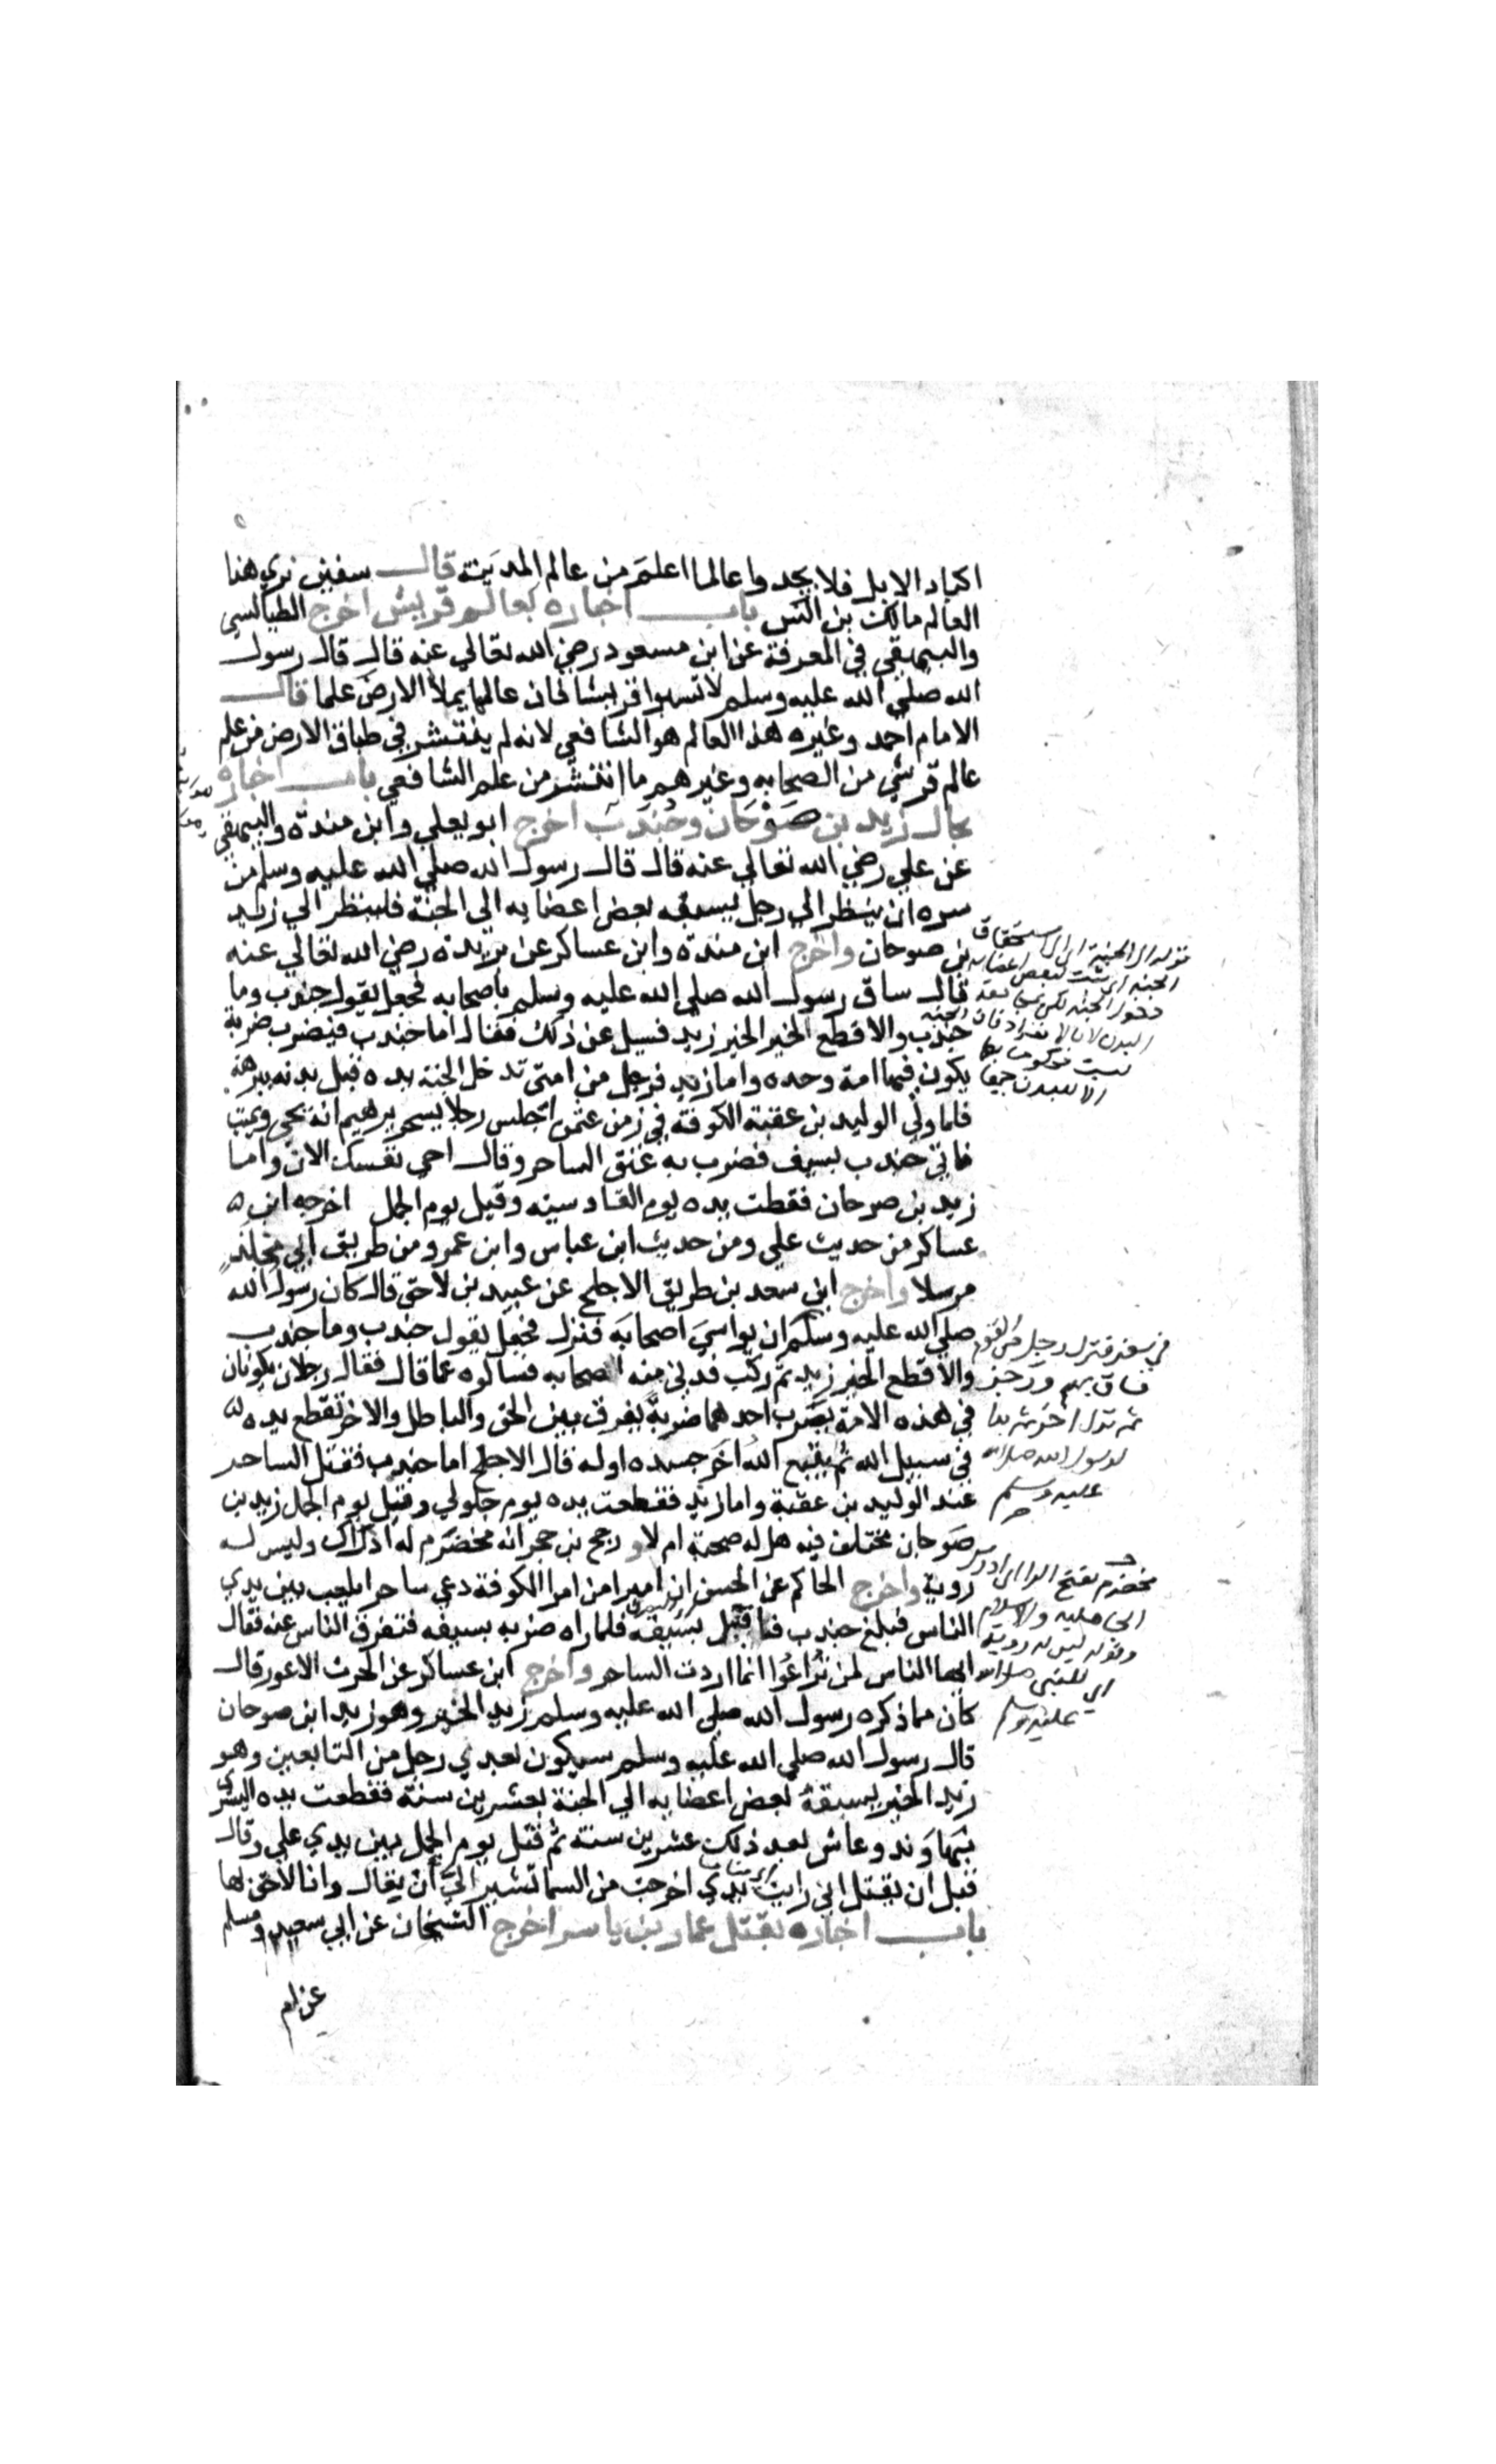 اكباد الابل فلا يجدوا عالما اعلم من عالم المدينة قال سفين نري هذا
العالم مالك بن انس باب اخباره بعالم قريش اخرج الطيالسي
والبيهقي في المعرفة عن ابن مسعود رضي الله تعالي عنه قال قال رسول
الله صلي الله عليه وسلم لا تسبوا قريشا فان عالمها يملأ الارض علما قال
الامام احمد وغيره هذا العالم هو الشافعي لانه لم ينتشر في طباق الارض من علم
عالم قرشي من الصحابه وغيرهم ما انتشر من علم الشافعي باب اخباره
بحال زيد بن صوحان وجندب اخرج ابو يعلي وابن مندة والبيهقي
عن علي رضي الله تعالي عنه قال قال رسول الله صلي الله عليه وسلم من
سره ان ينظر الي رجل يسبقه بعض اعضايه الي الجنة فلينظر الي زيد
بن صوحان واخرج ابن مندة وابن عساكر عن بريدة رضي الله تعالي عنه
قال ساق رسول الله صلي الله عليه وسلم باصحابه فجعل يقول جندب وما
جندب والاقطع الخير الخير زيد فسيل عن ذلك فقال اما جندب فيضرب ضربة
يكون فيها امة وحده واما زيد فرجل من امتي تدخل الجنة يده قبل بدنه ببرهة
فلما ولي الوليد بن عقبة الكوفة في زمن عثمن اجلس رجلا يسحر يريهم انه يحي ويميت
فاتي جندب بسيف فضرب به عنق الساحر وقال احي نفسك الان واما
زيد بن صوحان فقطت يده يوم القادسيه وقيل يوم الجمل اخرجه ابن
عساكر من حديث علي ومن حديث ابن عباس وابن عمر ومن طريق ابي مجلز
مرسلا واخرج ابن سعد بن طريق الاجلح عن عبيد بن لاحق قال كان رسول الله
صلي الله عليه وسلم ان يواسي اصحابه فنزل فجعل يقول جندب وما جندب
والاقطع الخير زيد ثم ركب فدني منه اصحابه فسالوه عما قال فقال رجلان يكونان
في هذه الامة يضرب احدهما ضربة يفرق بين الحق والباطل والاخر تقطع يده
في سبيل الله ثم يتبع الله اخر جسده اوله قال الاجلح اما جندب فقتل الساحر
عند الوليد بن عقبة واما زيد فقطعت يده يوم جلولي وقتل يوم الجمل زيد بن
صوحان مختلف فيه هل له صحبة ام لا ورجح بن حجر انه مخضرم له ادراك وليس له
روية واخرج الحاكم عن الحسن ان اميرا من امرا الكوفة دعي ساحرا يلعب بين يدي
الناس فبلغ جندب فاقبل بسيفه فلما راه ضربه بسيفه فتفرق الناس عنه فقال
ايها الناس لن تراعوا انما اردت الساحر واخرج ابن عساكر عن الحرث الاعور قال
كان مما ذكره رسول الله صلي الله عليه وسلم زيد الخير وهو زيد ابن صوحان
قال رسول الله صلي الله عليه وسلم سيكون بعدي رجل من التابعين وهو
زيد الخير يسبقه بعض اعضايه الي الجنة بعشرين سنة فقطعت يده اليسري
بنهاوند وعاش بعد ذلك عشرين سنة ثم قتل يوم الجمل بين يدي علي وقال
قبل ان يقتل اني رايت يدي اخرجت من السما تشير الي ان يقال وانا لاحق بها
باب اخباره بقتل عمار بن ياسر اخرج الشيخان عن ابي سعيد ومسلم
عن ام
قوله الي الجنة اي الي استحقاق
في سفر فنزل رجل من القوم
فساق بهم ورجز
ثم نزل اخر ثم بدا
لرسول الله صلي الله
عليه وسلم
مخضرم بفتح الرا اي ادرك
الجاهلية والاسلام
وقوله ليس له روية
اي للنبي صلي الله
عليه وسلم